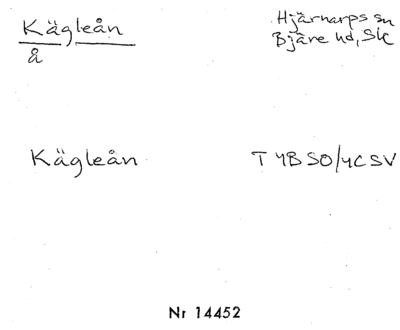 Kägleån
å
Hjärnarps sn
Bjäre hd, Sk
Kägleån
T 4B SO/4C SV
Nr 14452